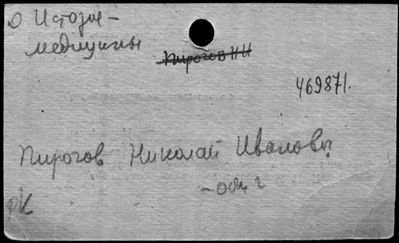 О История
медицины
Пирогов Н И
469871.
Пирогов Николай Иванович
-общ г
рК